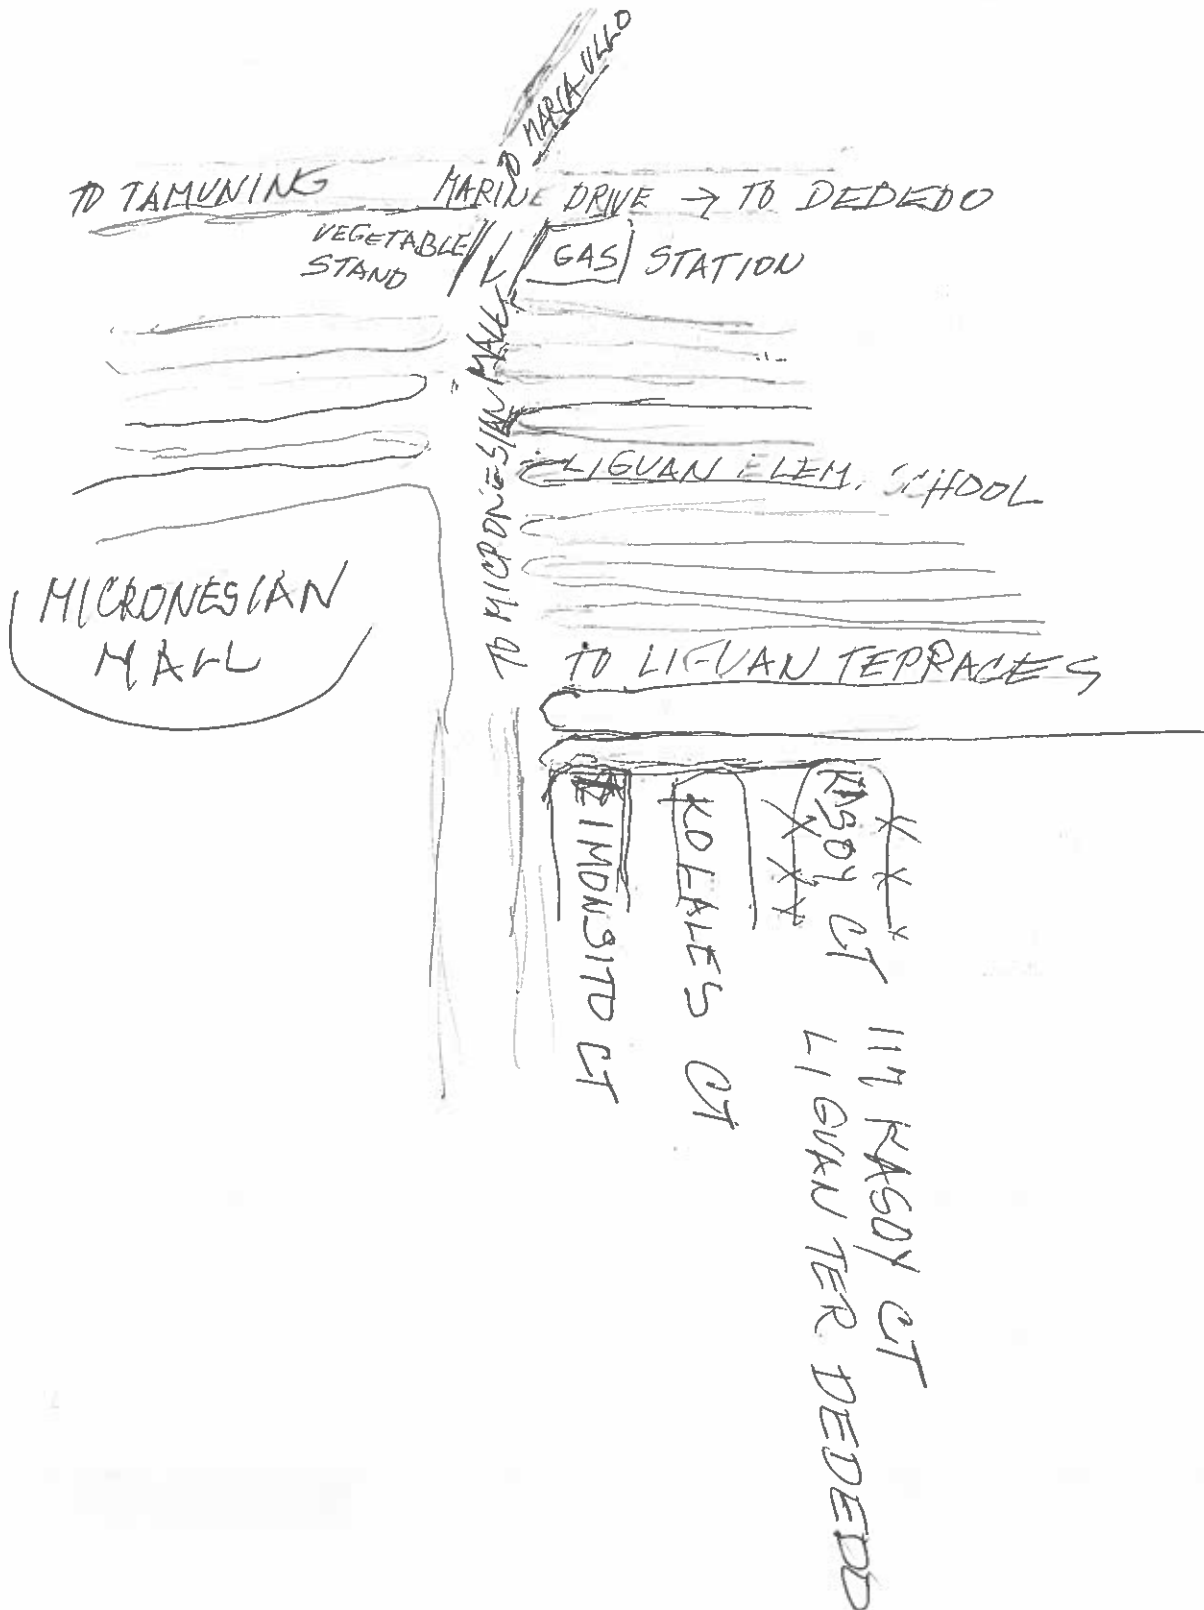 TO MARIA ULLO
TO TAMUNING MARINE DRIVE → TO DEDEDO
VEGETABLE
STAND
GAS STATION
TO MICRONESIAN MALL
LIGUAN ELEM. SCHOOL
MICRONESIAN
MALL
TO LIGUAN TERRACES
KOLALES CT
KASOY CT
117 KASOY CT
LIGUAN TER. DEDEDO